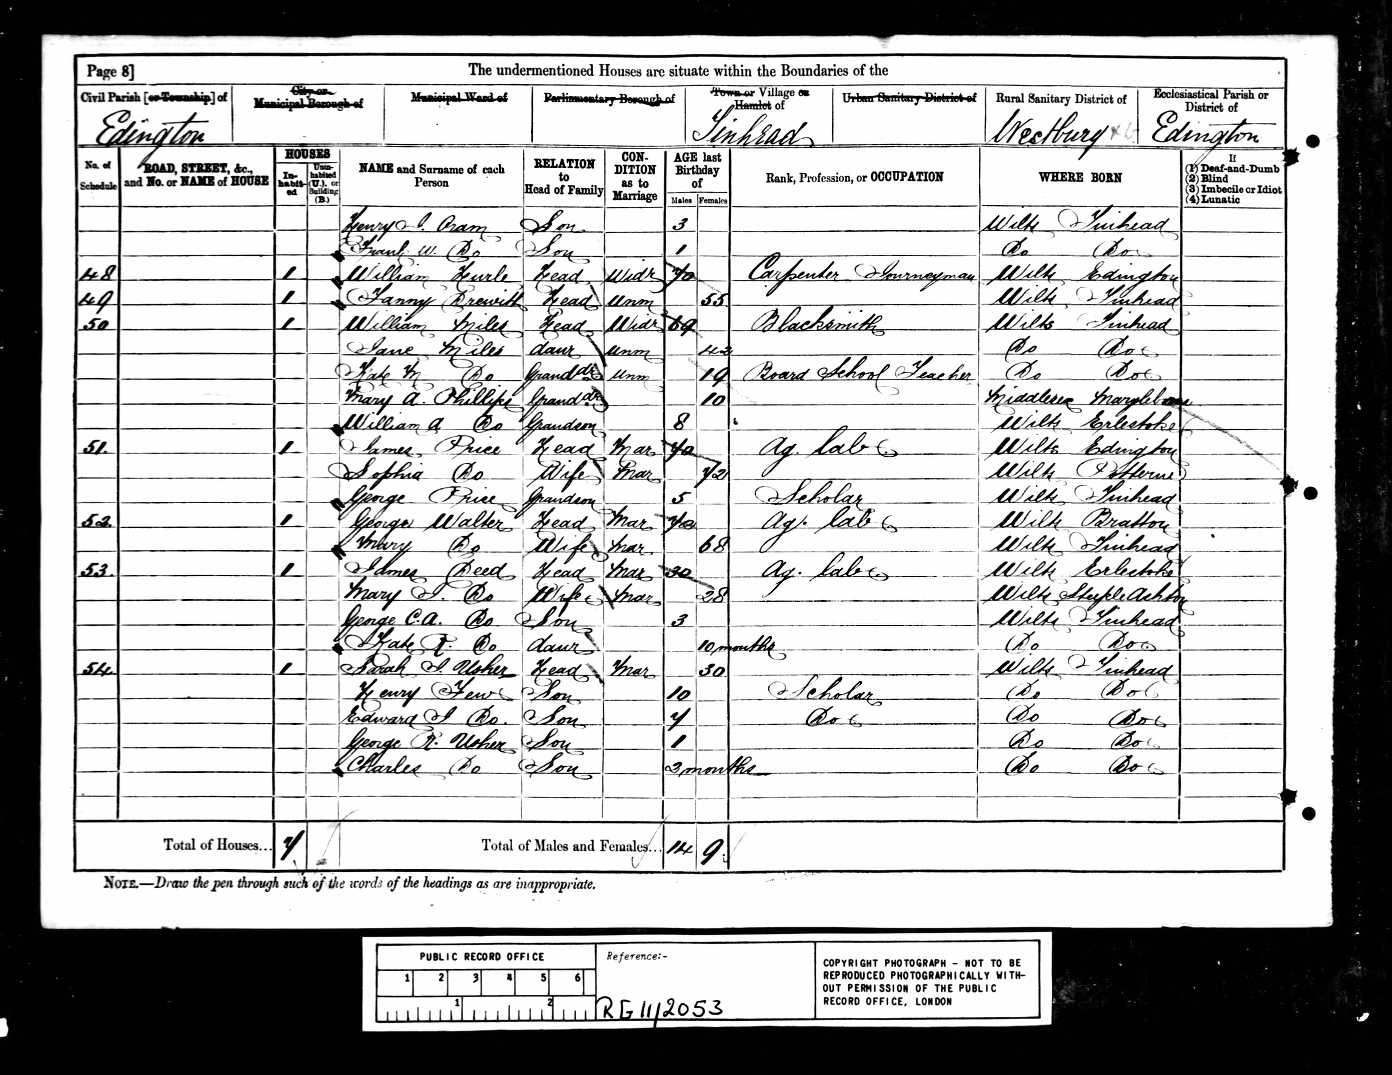 Page 8] The undermentioned Houses are situate within the Boundaries of the
Civil Parish [or Township] of City or Municipal Borough of Municipal Ward of Parliamentary Borough of Town or Village or Hamlet of Urban Sanitary District of Rural Sanitary District of Ecclesiastical Parish or District of
Edington Tinhead Westbury Edington
No. of Schedule ROAD, STREET, &c., and No. or NAME of HOUSE HOUSES In-habit-ed Unin-habited (U.), or Building (B.) NAME and Surname of each Person RELATION to Head of Family CON-DITION as to Marriage AGE last Birthday of Males Females Rank, Profession, or OCCUPATION WHERE BORN If (1) Deaf-and-Dumb (2) Blind (3) Imbecile or Idiot (4) Lunatic
Henry J. Oram Son 3 Wilts Tinhead
Frank W. Do Son 1 Do Do
48 1 William Hurle Head Widr 70 Carpenter Journeyman Wilts Edington
49 1 Fanny Drewitt Head Unm 55 Wilts Tinhead
50 1 William Miles Head Widr 69 Blacksmith Wilts Tinhead
Jane Miles daur Unm 42 Do Do
Kate M Do Grand dr Unm 19 Board School Teacher Do Do
Mary A. Phillips Grand dr 10 Middlesex Marylebone
William A Do Grandson 8 Wilts Erlestoke
51. 1 James Price Head Mar 70 Ag. lab Wilts Edington
Sophia Do Wife Mar 72 Wilts Potterne
George Price Grandson 5 Scholar Wilts Tinhead
52. 1 George Walter Head Mar 72 Ag. lab Wilts Bratton
Mary Do Wife Mar 68 Wilts Tinhead
53. 1 James Deed Head Mar 30 Ag. lab Wilts Erlestoke
Mary J. Do Wife Mar 28 Wilts Steeple Ashton
George C.A. Do Son 3 Wilts Tinhead
Kate R. Do daur 10 months Do Do
54 1 Sarah J Usher Head Mar 30 Wilts Tinhead
Henry Few Son 10 Scholar Do Do
Edward J Do. Son 7 Do Do Do
George R. Usher Son 1 Do Do
Charles Do Son 2 months Do Do
Total of Houses... 7 Total of Males and Females... 14 9
NOTE.—Draw the pen through such of the words of the headings as are inappropriate.
PUBLIC RECORD OFFICE
1 2 3 4 5 6
1 2
Reference:-
RG 11/2053
COPYRIGHT PHOTOGRAPH - NOT TO BE
REPRODUCED PHOTOGRAPHICALLY WITH-
OUT PERMISSION OF THE PUBLIC
RECORD OFFICE, LONDON